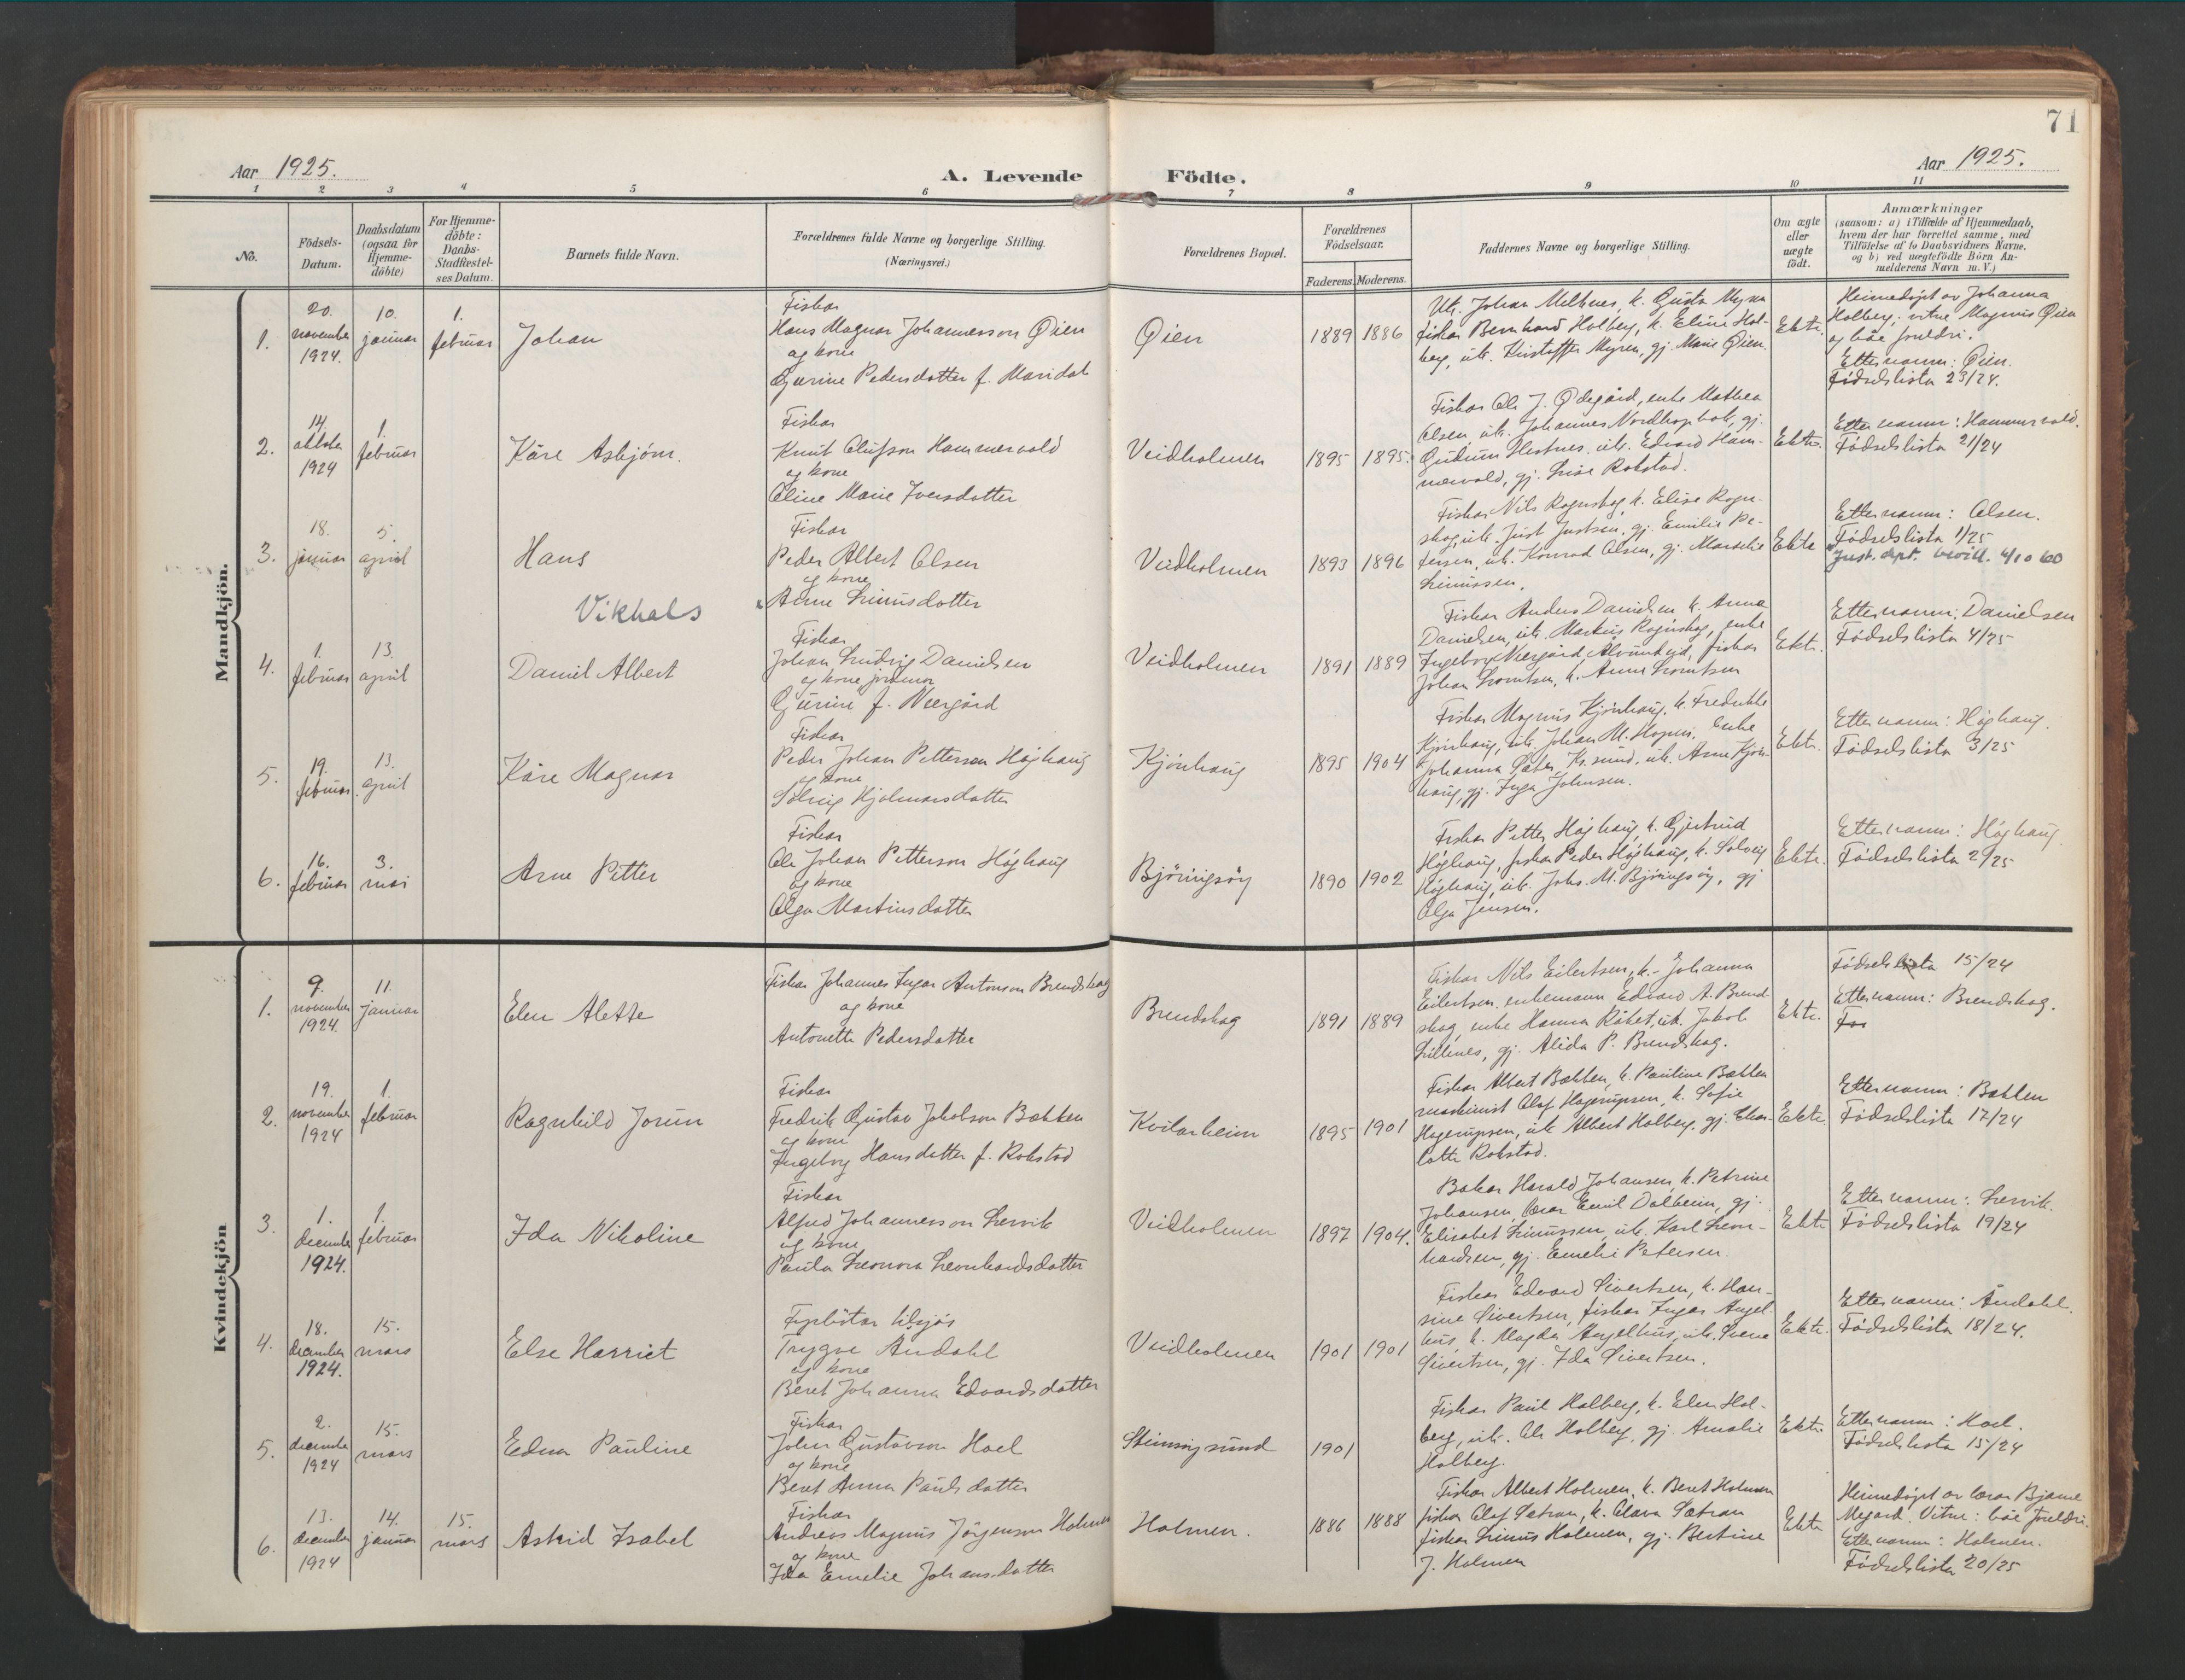 71
Aar 1925.
A. Levende Födte.
Aar 1925.
1 2 3 4 5 6 7 8 9 10 11
No.
Födsels-
Datum.
Daabsdatum
(ogsaa for
Hjemme-
döbte)
For Hjemme-
döbte:
Daabs-
Stadfæstel-
ses Datum.
Barnets fulde Navn.
Forældrenes fulde Navne og borgerlige Stilling.
(Næringsvei.)
Forældrenes Bopæl.
Forældrenes
Födselsaar.
Faderens. Moderens.
Faddernes Navne og borgerlige Stilling.
Om ægte
eller
uægte
födt.
Anmærkninger
(saasom: a) i Tilfælde af Hjemmedaab,
hvem der har forrettet samme, med
Tilföielse af to Daabsvidners Navne.
og b) ved uægtefödte Börn An-
melderens Navn m.V.)
Mandkjön.
1.
20.
november
1924.
10.
januar
1.
februar
Johan
Fiskar
Hans Magnar Johannesson Øien
og kone
Gjurine Pedersdotter f. Maridal
Øien
1889
1886
Utk. Johan Melhus, k. Gusta Myren
fiskar Bernhard Holberg, k. Eline Hol-
berg, utk. Kristoffer Myren, gj. Marie Øien.
Ekte.
Heimedøypt av Johanna
Holberg; vitne Magnus Øien
og båe foreldri.
Etternamn: Øien.
Fødselslista 23/24.
2.
14.
oktober
1924
1.
februar
Kåre Asbjørn.
Fiskar
Knut Olufson Hammervold
og kone
Oline Marie Iversdotter
Veidholmen
1895
1895.
Fiskar Ole J. Ødegård, enke Mathea
Olsen, utk. Johannes Nordhopbak, gj.
Gudrun Hestnes, utk. Edvard Ham-
mervold, gj. Lise Rokstad.
Ekte.
Etternamn: Hammervold.
Fødselslista 21/24
3.
18.
januar
5.
april
Hans
Vikhals
Fiskar
Peder Albert Olsen
og kone
Anne Linusdotter
Veidholmen
1893
1896
Fiskar Nils Rognskog, k. Elise Rogn-
skog, utk. Just Justsen, gj. Emilie Pe-
tersen, utk. Konrad Olsen, gj. Marselie
Linussen.
Ekte
Etternamn: Olsen.
Fødselslista 1/25
Just. dept. bevill. 4/10 60
4.
1.
februar
13.
april
Daniel Albert
Fiskar
Johan Ludvig Danielsen
og kone jordmor
Gjurine f. Neergård
Veidholmen
1891
1889
Fiskar Anders Danielsen k. Anna
Danielsen, utk. Markus Rognskog, enke
Ingeborg Neergård Alvundeid, fiskar
Johan Lorntsen, k. Anne Lorntsen
Ekte.
Etternamn: Danielsen
Fødselslista 4/25
5.
19.
februar
13.
april
Kåre Magnar
Fiskar
Peder Johan Petterson Høghaug
og kone
Solveig Hjalmarsdotter
Kjønhaug
1895
1904
Fiskar Magnus Kjønhaug, k. Fredrikke
Kjønhaug, utk. Johan M. Hopen, enke
Johanna Sæter, Kr.sund, utk. Arne Kjøn-
haug, gj. Inga Johnsen.
Ekte.
Etternamn: Høghaug.
Fødselslista 3/25
6.
16.
februar
3.
mai
Arne Petter
Fiskar
Ole Johan Petterson Høghaug
og kone
Olga Martinsdotter
Bjøringsøy
1890
1902
Fiskar Petter Høghaug, k. Gjertrud
Høghaug, fiskar Peder Høghaug, k. Solveig
Høghaug, utk. Johs. M. Bjøringsøy, gj
Olga Jensen.
Ekte.
Etternamn: Høghaug
Fødselslista 2/25
Kvindekjön
1.
9.
november
1924.
11.
januar
Elen Alette
Fiskar Johannes Ingar Antonson Brendskag
og kone
Antonette Pedersdotter
Brendskag
1891
1889
Fiskar Nils Eilertsen, k. Johanna
Eilertsen. enkemann Edvard A. Brend-
skag, enke Hanna Råket, utk. Jakob
Lillenes, gj. Alida P. Brendskag.
Ekte.
Fødselslista 15/24
Etternamn: Brendskag.
2.
19.
november
1924
1.
februar
Ragnhild Jorun
Fiskar
Fredrik Gustav Jakobson Bakken
og kone
Ingeborg Hansdotter f. Rokstad
Kvitarheim
1895
1901
Fiskar Albert Bakken, k. Pauline Bakken
maskinist Olaf Hagerupsen, k. Sofie
Hagerupsen, utk. Albert Holberg, gj. Char-
lotte Rokstad.
Ekte.
Etternamn: Bakken
Fødselslista 17/24
3.
1.
december
1924.
1.
februar
Ida Nikoline
Fiskar
Alfred Johannesson Lervik
og kone
Paula Leonora Leonhardsdotter
Veidholmen
1897
1904.
Bakar Harald Johansen, k. Petrine
Johansen, lærar Emil Dalheim, gj.
Elisabet Linussen, utk. Karl Leon-
hardsen, gj. Emelie Petersen.
Ekte
Etternamn: Lervik.
Fødselslista 19/24
4.
18.
december
1924.
15.
mars
Else Harriet
Fyrbøtar tilsjøs
Trygve Aundahl
og kone
Beret Johanna Edvardsdotter
Veidholmen
1901
1901
Fiskar Edvard Sivertsen, k. Han-
sine Sivertsen, fiskar Ingar Angel-
hus, k. Magda Angelhus, utk. Sverre
Sivertsen, gj. Ida Sivertsen.
Ekte.
Etternamn: Åndahl.
Fødselslista 18/24.
5.
2.
december
1924
15.
mars
Edna Pauline
Fiskar
John Gustavson Hoel
og kone
Beret Anna Paulsdotter
Steinsingsund
1901
Fiskar Paul Holberg, k. Elen Hol-
berg, utk. Ole Holberg, gj. Amalie
Holberg.
Ekte.
Etternamn: Hoel.
Fødselslista 15/24
6.
13.
december
1924
14.
januar
15.
mars
Astrid Isabel
Fiskar
Andreas Magnus Jørgenson Holmen
og kone
Ida Emelie Johansdotter
Holmen.
1886
1888
Fiskar Albert Holmen, k. Beret Holmen
fiskar Olaf Sætran, k. Clara Sætran
fiskar Linus Holmen, gj. Bertine
J. Holmen
Ekte
Heimedøypt av lærar Bjarne
Megard. Vitne: båe foreldri.
Etternamn: Holmen.
Fødselslista 20/25